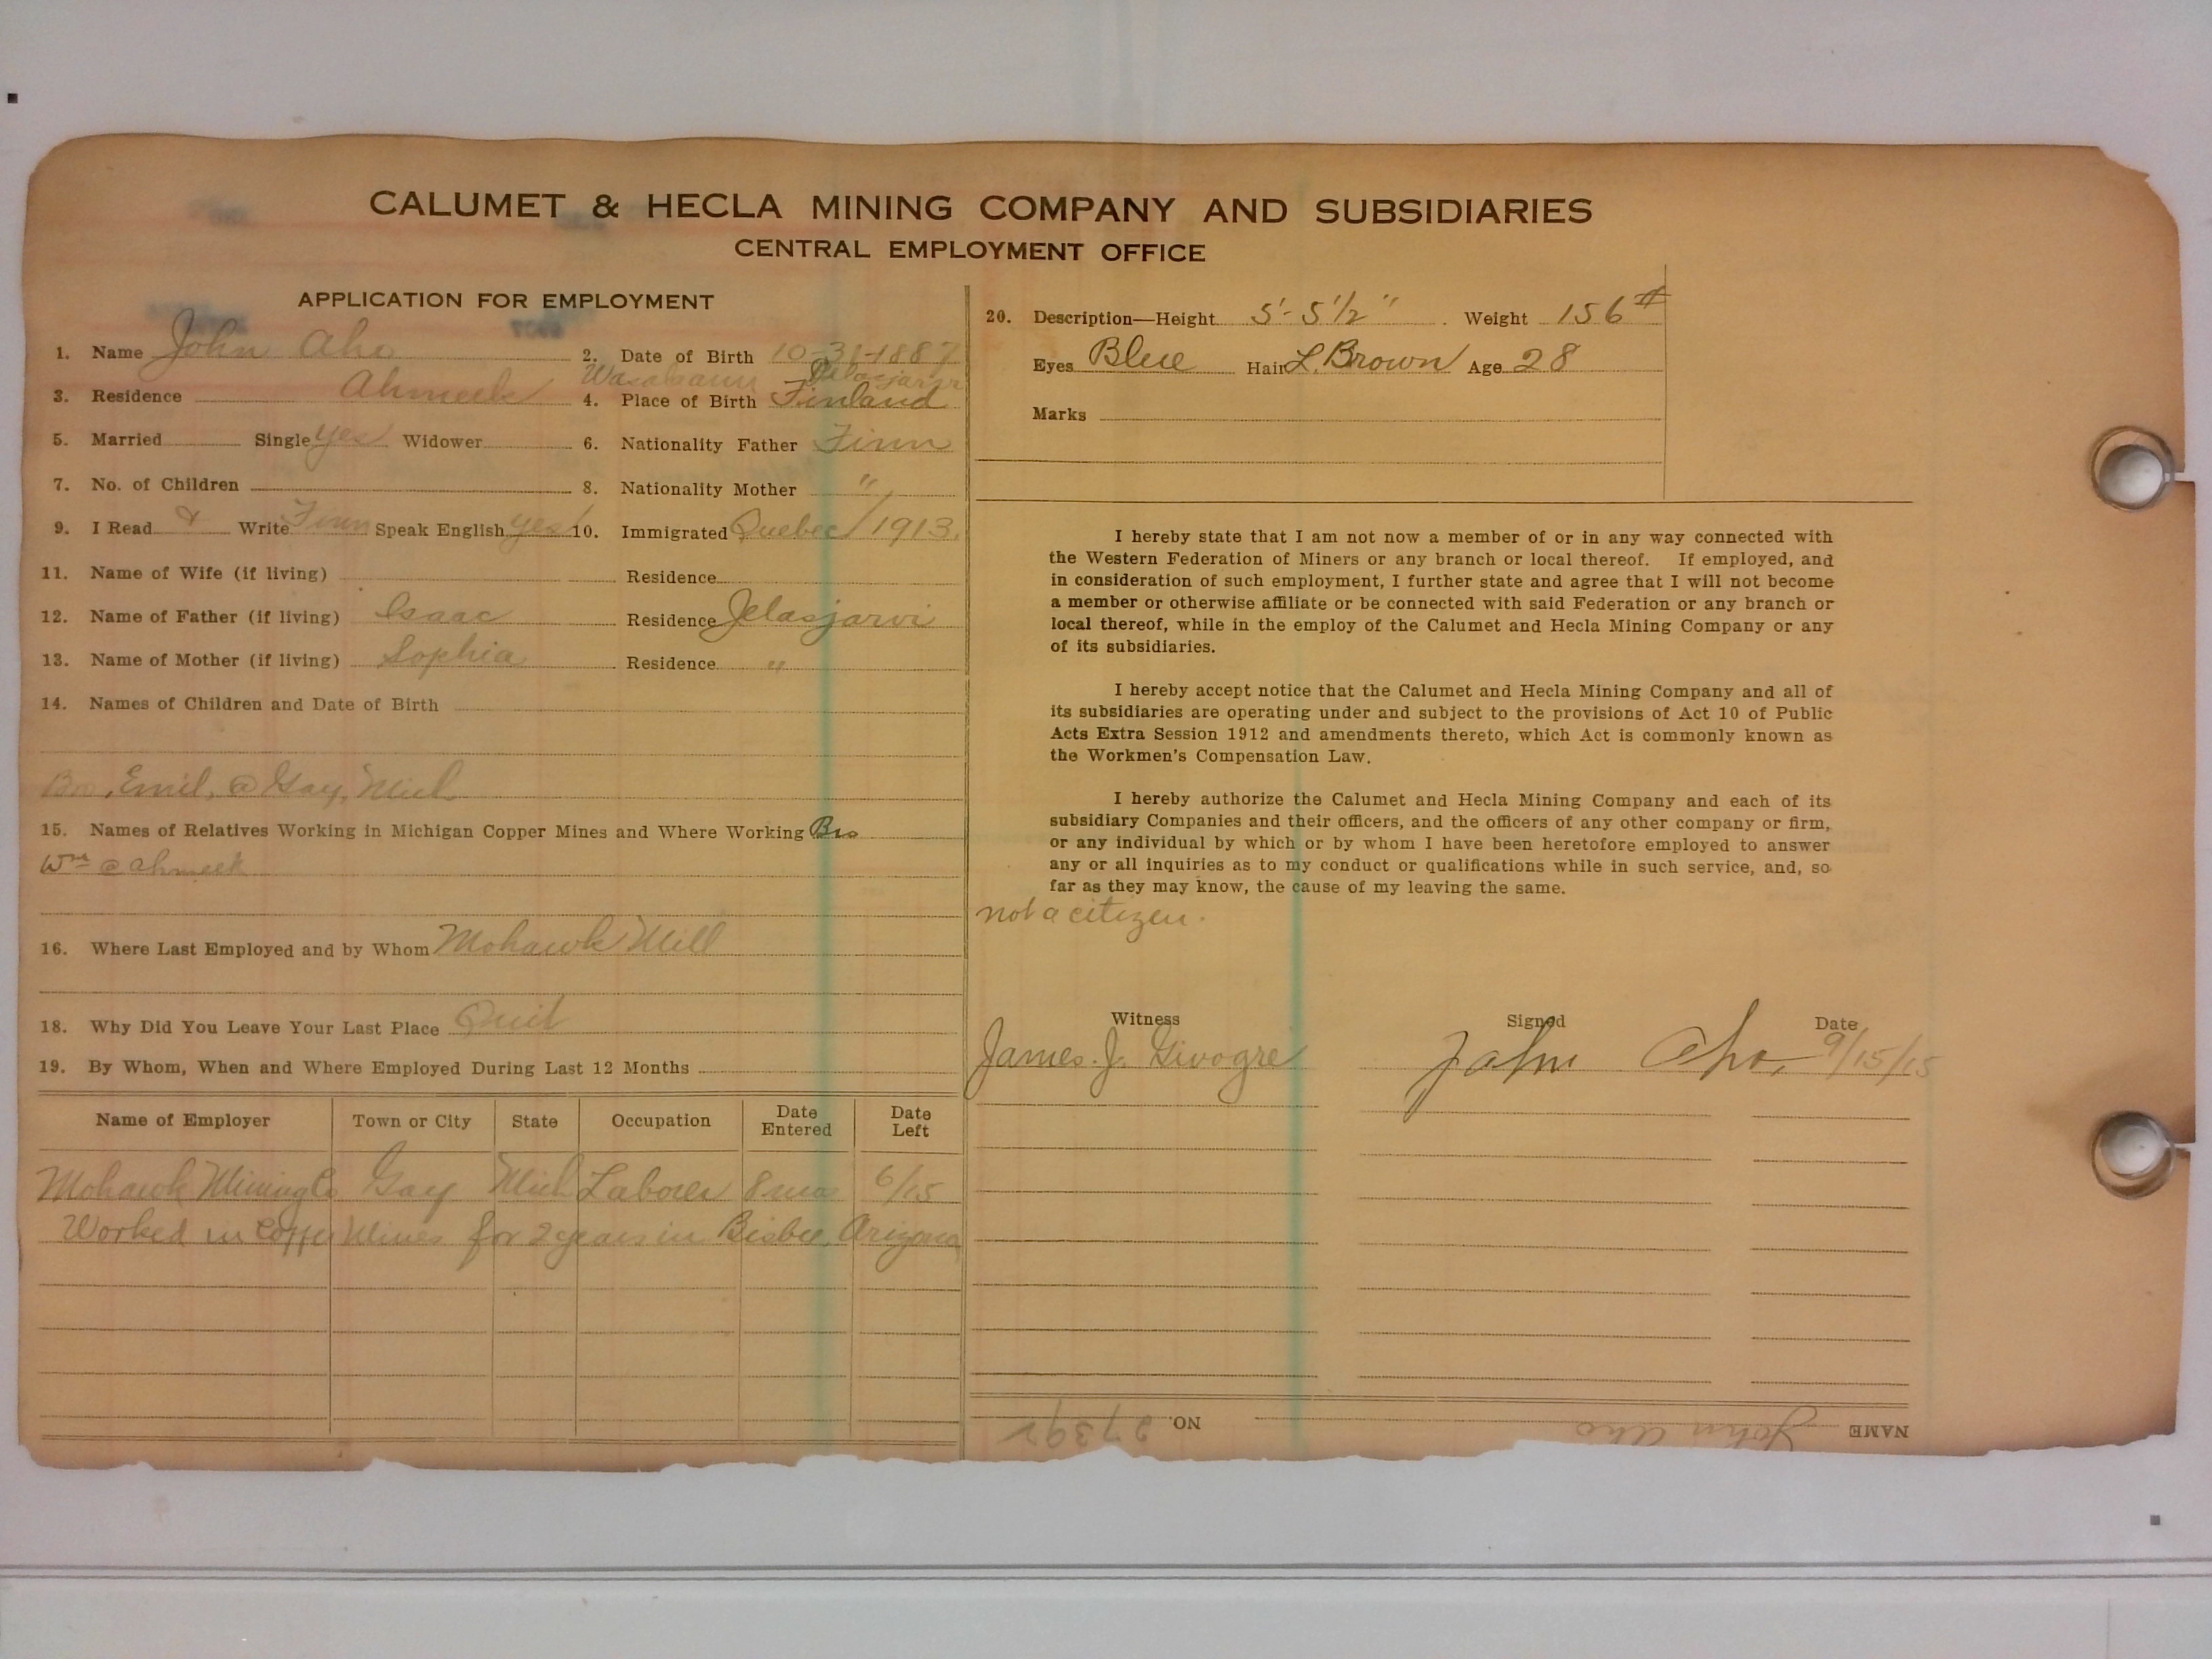 CALUMET & HECLA MINING COMPANY AND SUBSIDIARIES
CENTRAL EMPLOYMENT OFFICE
APPLICATION FOR EMPLOYMENT
1. Name John Aho 2. Date of Birth 10-31-1887
Jelasjarvi
3. Residence Ahmeek 4. Place of Birth Finland
5. Married Single yes Widower 6. Nationality Father Finn
7. No. of Children 8. Nationality Mother "
9. I Read & Write Finn Speak English yes 10. Immigrated Quebec / 1913.
11. Name of Wife (if living) Residence
12. Name of Father (if living) Isaac Residence Jelasjarvi
13. Name of Mother (if living) Sophia Residence "
14. Names of Children and Date of Birth
Bro, Emil, @ Gay, Mich
15. Names of Relatives Working in Michigan Copper Mines and Where Working Bro
Wm @ Ahmeek
16. Where Last Employed and by Whom Mohawk Mill
18. Why Did You Leave Your Last Place Quit
19. By Whom, When and Where Employed During Last 12 Months
Name of Employer Town or City State Occupation Date Entered Date Left
Mohawk Mining Co Gay Mich Laborer 8 mos 6/15
Worked in Copper Mines for 2 years in Bisbee, Arizona
20. Description—Height 5'-5 1/2" Weight 156 #
Eyes Blue Hair L. Brown Age 28
Marks
I hereby state that I am not now a member of or in any way connected with
the Western Federation of Miners or any branch or local thereof. If employed, and
in consideration of such employment, I further state and agree that I will not become
a member or otherwise affiliate or be connected with said Federation or any branch or
local thereof, while in the employ of the Calumet and Hecla Mining Company or any
of its subsidiaries.
I hereby accept notice that the Calumet and Hecla Mining Company and all of
its subsidiaries are operating under and subject to the provisions of Act 10 of Public
Acts Extra Session 1912 and amendments thereto, which Act is commonly known as
the Workmen's Compensation Law.
I hereby authorize the Calumet and Hecla Mining Company and each of its
subsidiary Companies and their officers, and the officers of any other company or firm,
or any individual by which or by whom I have been heretofore employed to answer
any or all inquiries as to my conduct or qualifications while in such service, and, so
far as they may know, the cause of my leaving the same.
not a citizen.
Witness Signed Date
James. J. Givogre John Aho, 9/15/15
NAME John Aho NO. 27392